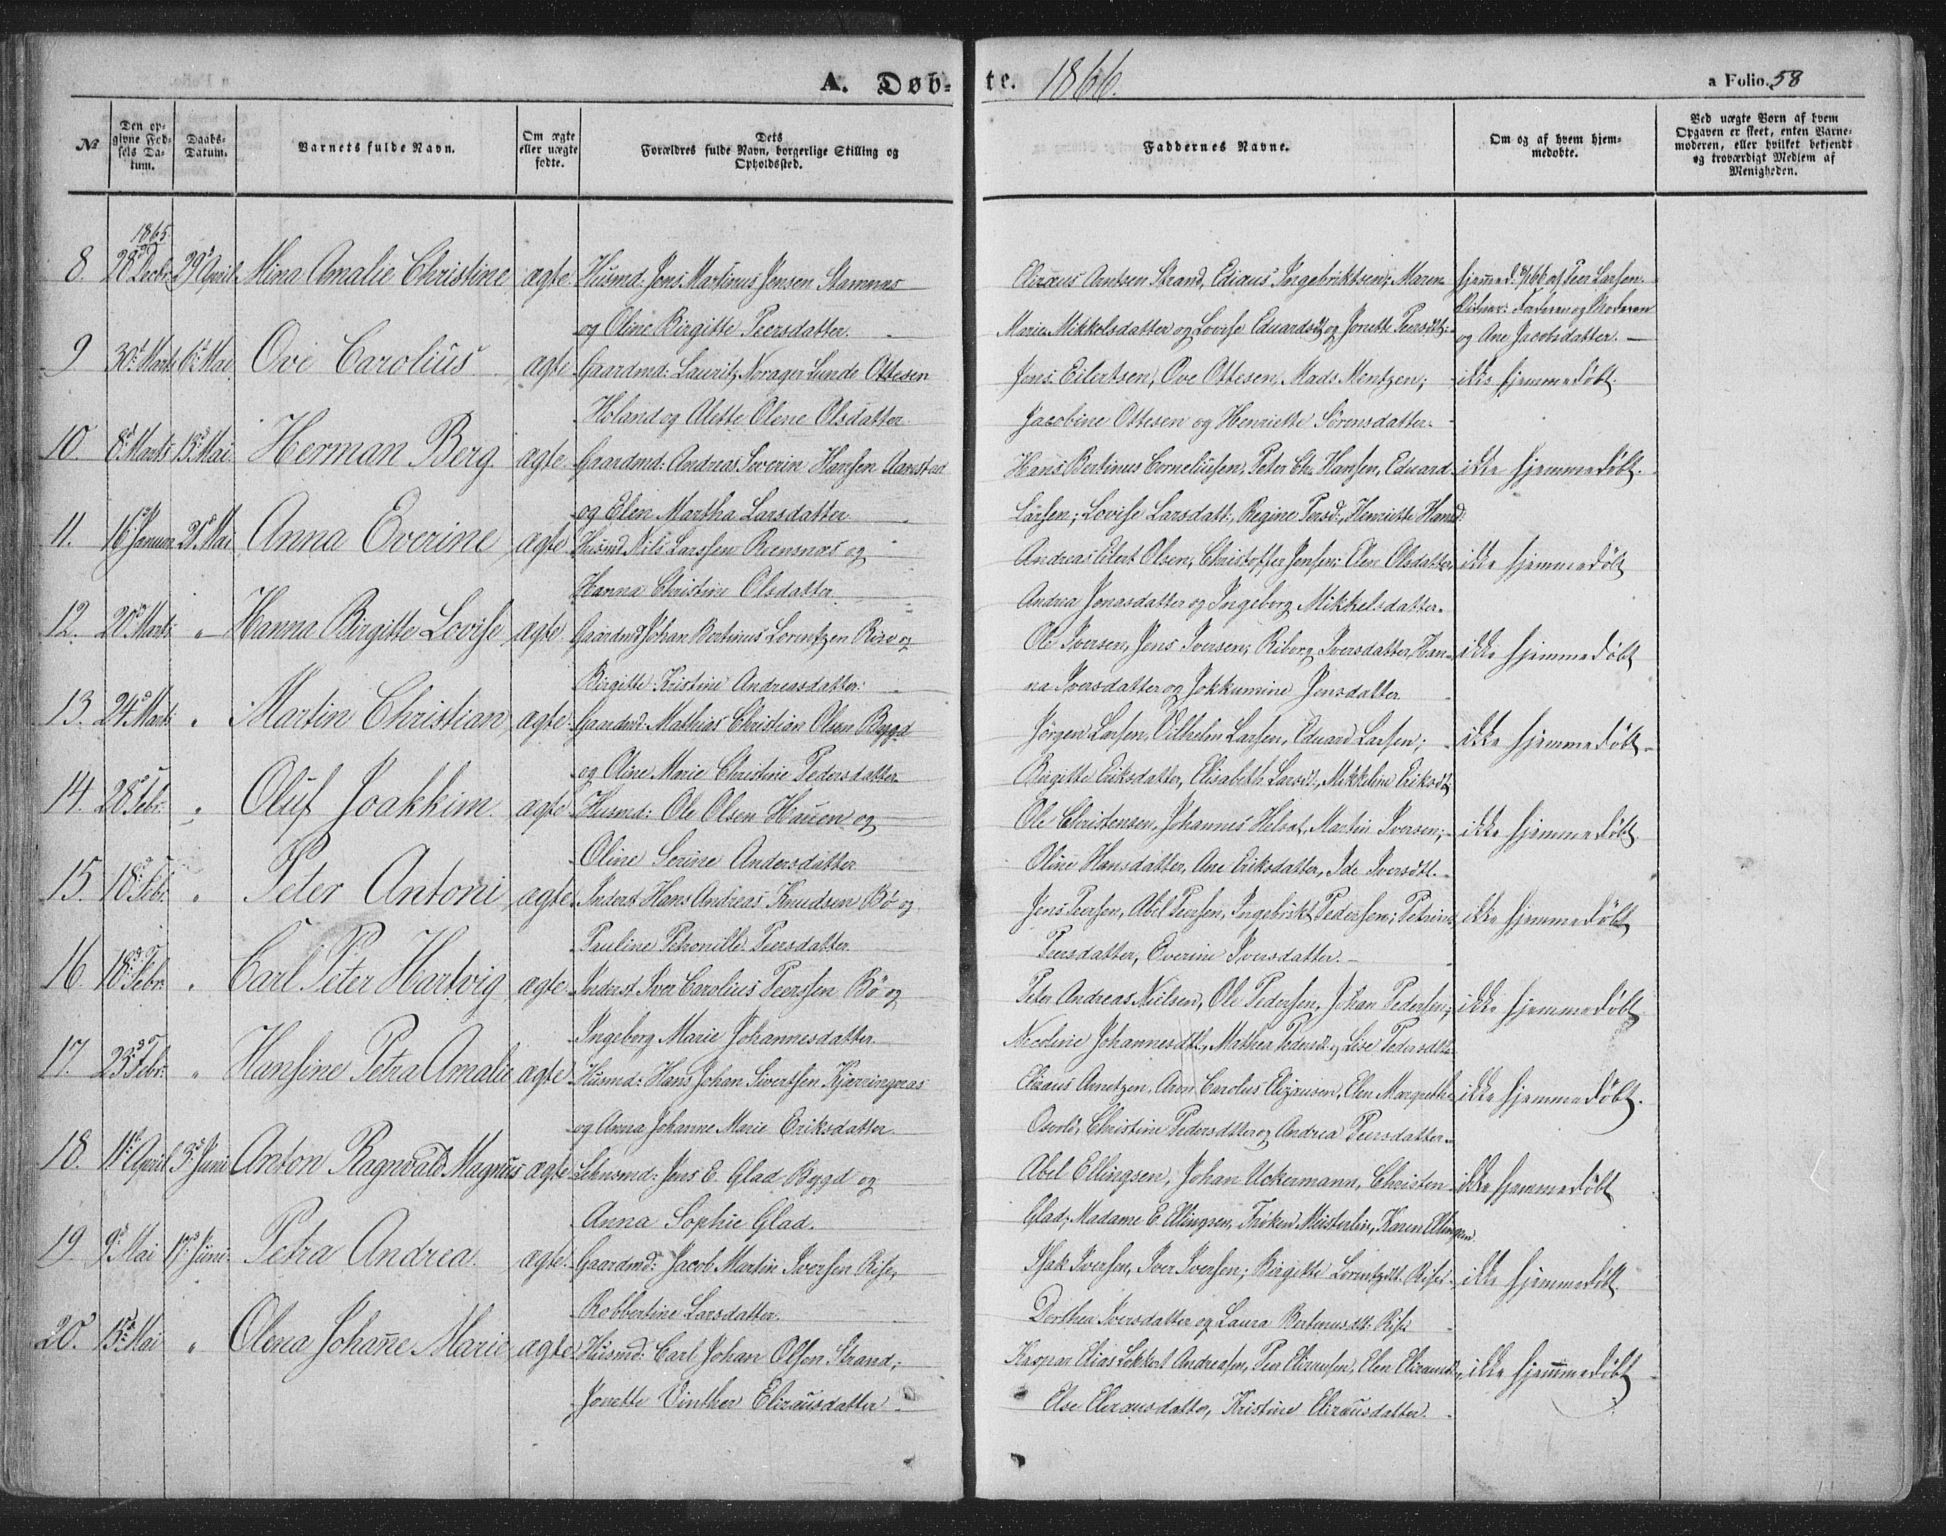 A. Døb-
te. 1866.
a Folio. 58
№
Den op-
givne Fød-
sels Da-
tum.
Daabs-
Datum.
Barnets fulde Navn.
Om ægte
eller uægte
fødte.
Dets
Forældres fulde Navn, borgerlige Stilling og
Opholdssted.
Faddernes Navne.
Om og af hvem hjem-
medøbte.
Ved uægte Børn af hvem
Opgaven er skeet, enten Barne-
moderen, eller hvilket bekjendt
og troværdigt Medlem af
Menigheden.
1865
8. 28 Decbr. 29 April Mina Amalie Christine ægte. Husmd: Jens Martinus Jensen Stamnes
og Oline Birgitte Peersdatter.
Elizæus Arntsen Strand, Ediæus Ingebriktsen; Maren
Marie Mikkelsdatter og Lovise Eduardsdt og Jonette Peersdt:
hjemmed: af Peer Larsen.
Vidner: Faderen og Moderen
og Ane Jacobsdatter.
9 30 Marts 6 Mai Ove Carolius ægte Gaardmd: Lauritz Norager Lunde Ottesen
Holand og Alette Olene Olsdatter.
Jens Eilertsen, Ove Ottesen, Mads Mentzen;
Jacobine Ottesen og Henriette Sörensdatter.
ikke hjemmedöbt.
10. 8 Marts 13 Mai. Herman Berg. ægte. Gaardmd: Andreas Severin Hansen Aarstar
og Elen Martha Larsdatter
Hans Bertinus Corneliussen, Peter Chr. Hansen, Eduard
Larsen; Lovise Larsdatt., Regine Persd., Henriette Hansd
ikke hjemmedöbt.
11. 16 Januar 21 Mai Anna Everine ægte Husmd Nils Larssen Remsnes og
Hanna Christine Olsdatter
Andreas Edert Olsen, Christoffer Jensen; Elen Olsdatter,
Andrea Jonasdatter og Ingeborg Mikkelsdatter.
ikke hjemmedöbt
12. 20 Marts " Hanna Birgitte Lovise ægte. Gaardmd Johan Bertinus Lorentzen Risø og
Birgitte Kristine Andreasdatter.
Ole Iversen, Jens Iversen; Riborg Iversdatter, Han-
na Iversdatter og Jokkumine Jensdatter
ikke hjemmedöbt
13. 24 Marts " Martin Christian ægte. Gaardmd: Mathias Christian Olsen Bygd
og Oline Marie Christine Pedersdatter
Jörgen Larsen, Vilhelm Larsen, Eduard Larsen;
Birgitte Eriksdatter, Elisabeth Larsdt., Mikkeline Eriksdt
ikke hjemmedöbt.
14. 28 Febr. " Oluf Joakkim. ægte. Husmd: Ole Olsen Hauen og
Oline Serine Andersdatter
Ole Christensen, Johannes Helset, Martin Iversen;
Oline Hansdatter, Ane Eriksdatter, Ide Iversdtt.
ikke hjemmedöbt.
15. 18 Febr. " Peter Antoni ægte. Inderst Hans Andreas Knudsen Bö og
Pauline Petronille Peersdatter
Jens Peersen, Abel Peersen, Ingebrikt Pedersen; Petrine
Peersdatter, Everine Iversdatter.
ikke hjemmedöbt
16. 18 Febr. " Carl Peter Hartvig ægte. Inderst Iver Carolius Peerssen Bö og
Ingeborg Marie Johannesdatter
Peter Andreas Nielsen, Ole Pedersen, Johan Pedersen;
Nicoline Johannesdt., Mathea Pedersdt. og Lise Pedersdtt.
ikke hjemmedöbt.
17. 23 Febr. " Hansine Petra Amalie ægte Husmd: Hans Johan Sivertsen Kjerringnæs
og Anna Johanne Marie Eriksdatter.
Elizæus Arntzen, Aron Carolus Elizæusen, Elen Margrethe
Osvold, Christine Pedersdtter og Andrea Peersdatter
ikke hjemmedöbt.
18. 11 April 3 Juni Anton Ragnvald Magnus ægte Lehnsmd: Jens E. Glad Bygd og
Anna Sophie Glad.
Abel Ellingsen, Johan Uckermann, Christen
Glad; Madame E. Ellingsen, Fröken Meisterlin, Karen Ellingsen
ikke hjemmedöbt
19 9 Mai 17 Juni. Petra Andrea. ægte. Gaardmd: Jacob Martin Iversen Risø,
Robbertine Larsdatter.
Isak Iversen, Iver Iversen; Birgitte Lorentzdt. Risø,
Dorthea Iversdatter og Laura Bertinusdt: Risø
ikke hjemmedöbt.
20. 15 Mai " Olena Johanne Marie ægte Husmd: Carl Johan Olsen Strand,
Jonette Vinther Elizæusdatter
Kaspar Elias Lekkert Andreasen, Peer Elizæusen, Elen Elizæusd.,
Else Elizæusdatter, Kristine Elizæusdatter.
ikke hjemmedöbt